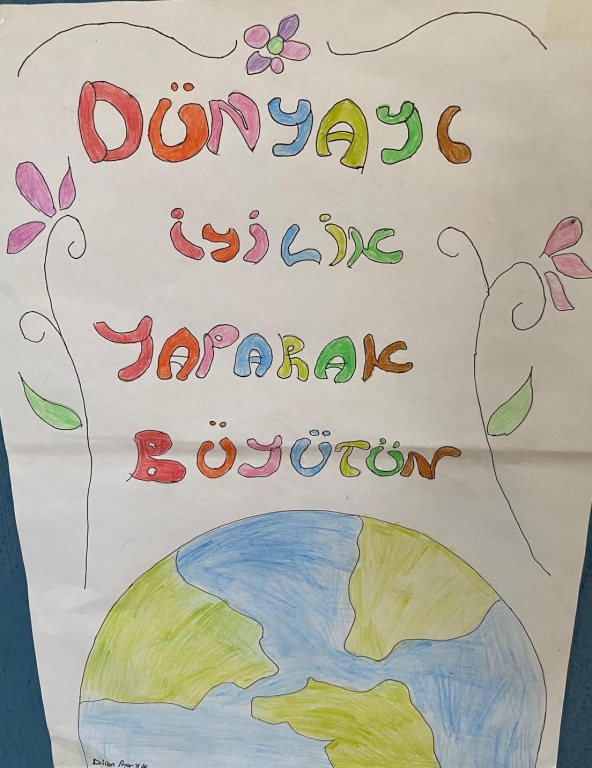 DÜNYAYI
İYİLİK
YAPARAK
BÜYÜTÜN